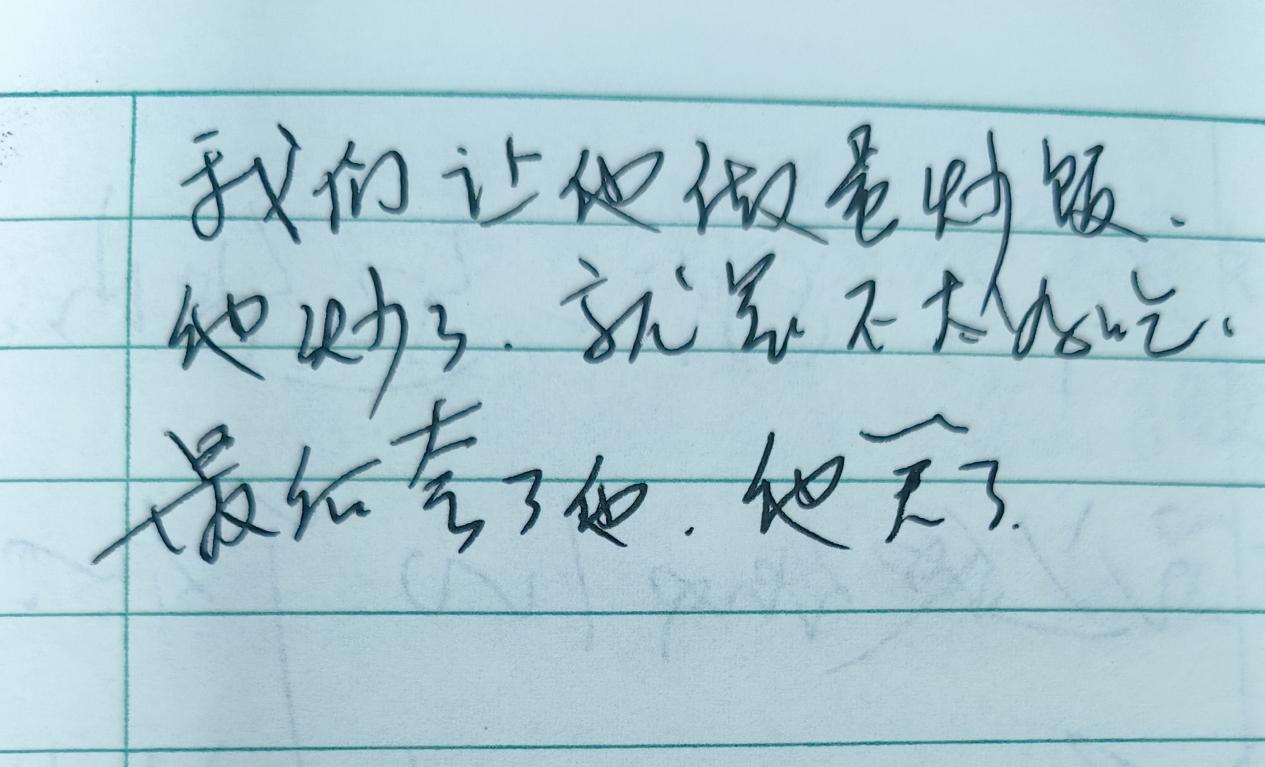 我们让他做蛋炒饭.
他炒了.就是不太好吃.
最后夸了他.他笑了.